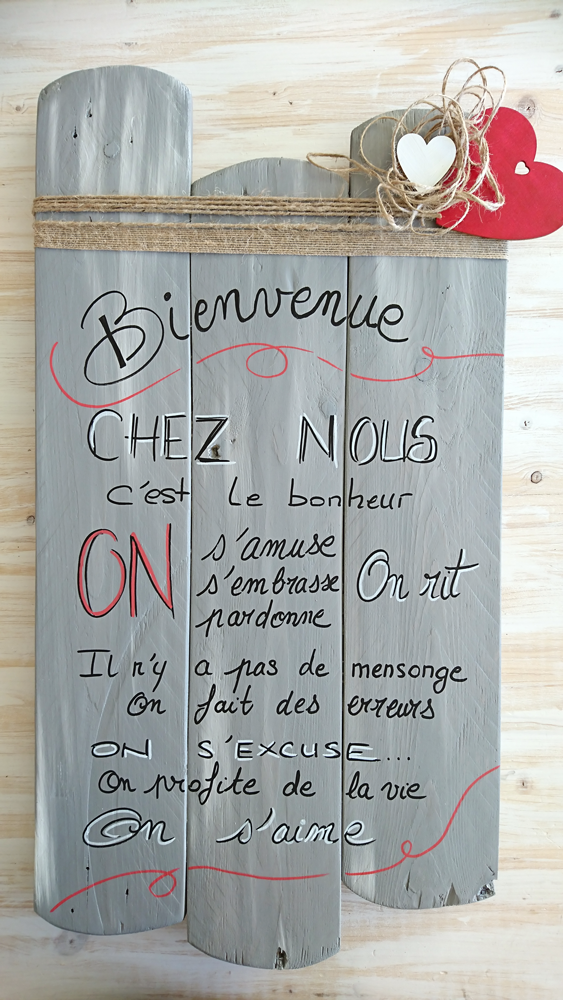 Bienvenue
CHEZ NOUS
c'est le bonheur
ON s'amuse
s'embrasse On rit
pardonne
Il n'y a pas de mensonge
On fait des erreurs
ON S'EXCUSE...
On profite de la vie
On s'aime